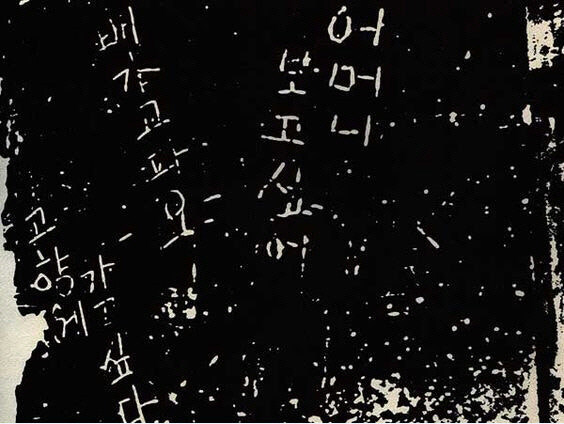 어머니
보고싶어
배가고파요
고향에
가고싶다